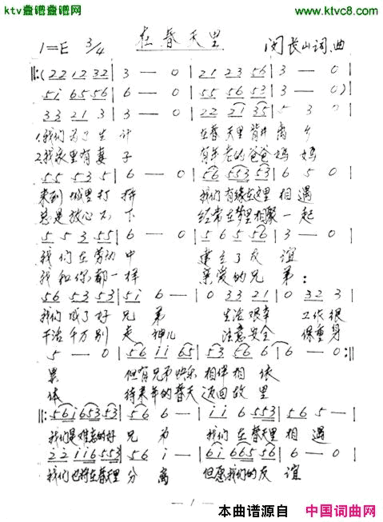 ktv曲谱曲谱网
www.ktvc8.com
在春天里
1=E 3/4
闵长山词曲
‖:(22 12 32 | 3 — 0 | 21 23 56 | 3 — 0
51 65 56 | 6 — 0 | 55 53 56 | 3 — 0)
33 21 3 | 3 — 0 | 22 21 35 | 5 3 0
1.我们为了生计 在春天里背井离乡
2.我家里有妻子 有年老的爸爸妈妈
55 53 5 | 6 — 0
来到城里打拼 我们有缘在这里相遇
总是放心不下 经常在梦里相聚一起
5 5 3 55 | 6 — 0 | 5 6 5 56 | 3 — 0
我们在劳动中 建立了友谊
我和你都一样 亲爱的兄弟:
56 53 53 | 51 6 — | 0 33 21 | 0 32 3
我们成了好兄弟 生活艰辛 工作很
干活千万别走神儿 注意安全 保重身
累 但有兄弟快乐相伴相依
体 待来年的春天返回故里
我们是难忘的好兄弟 我们在春天里相遇
我们也将在春天里分离 但愿我们的友谊
— 1 —
本曲谱源自 中国词曲网